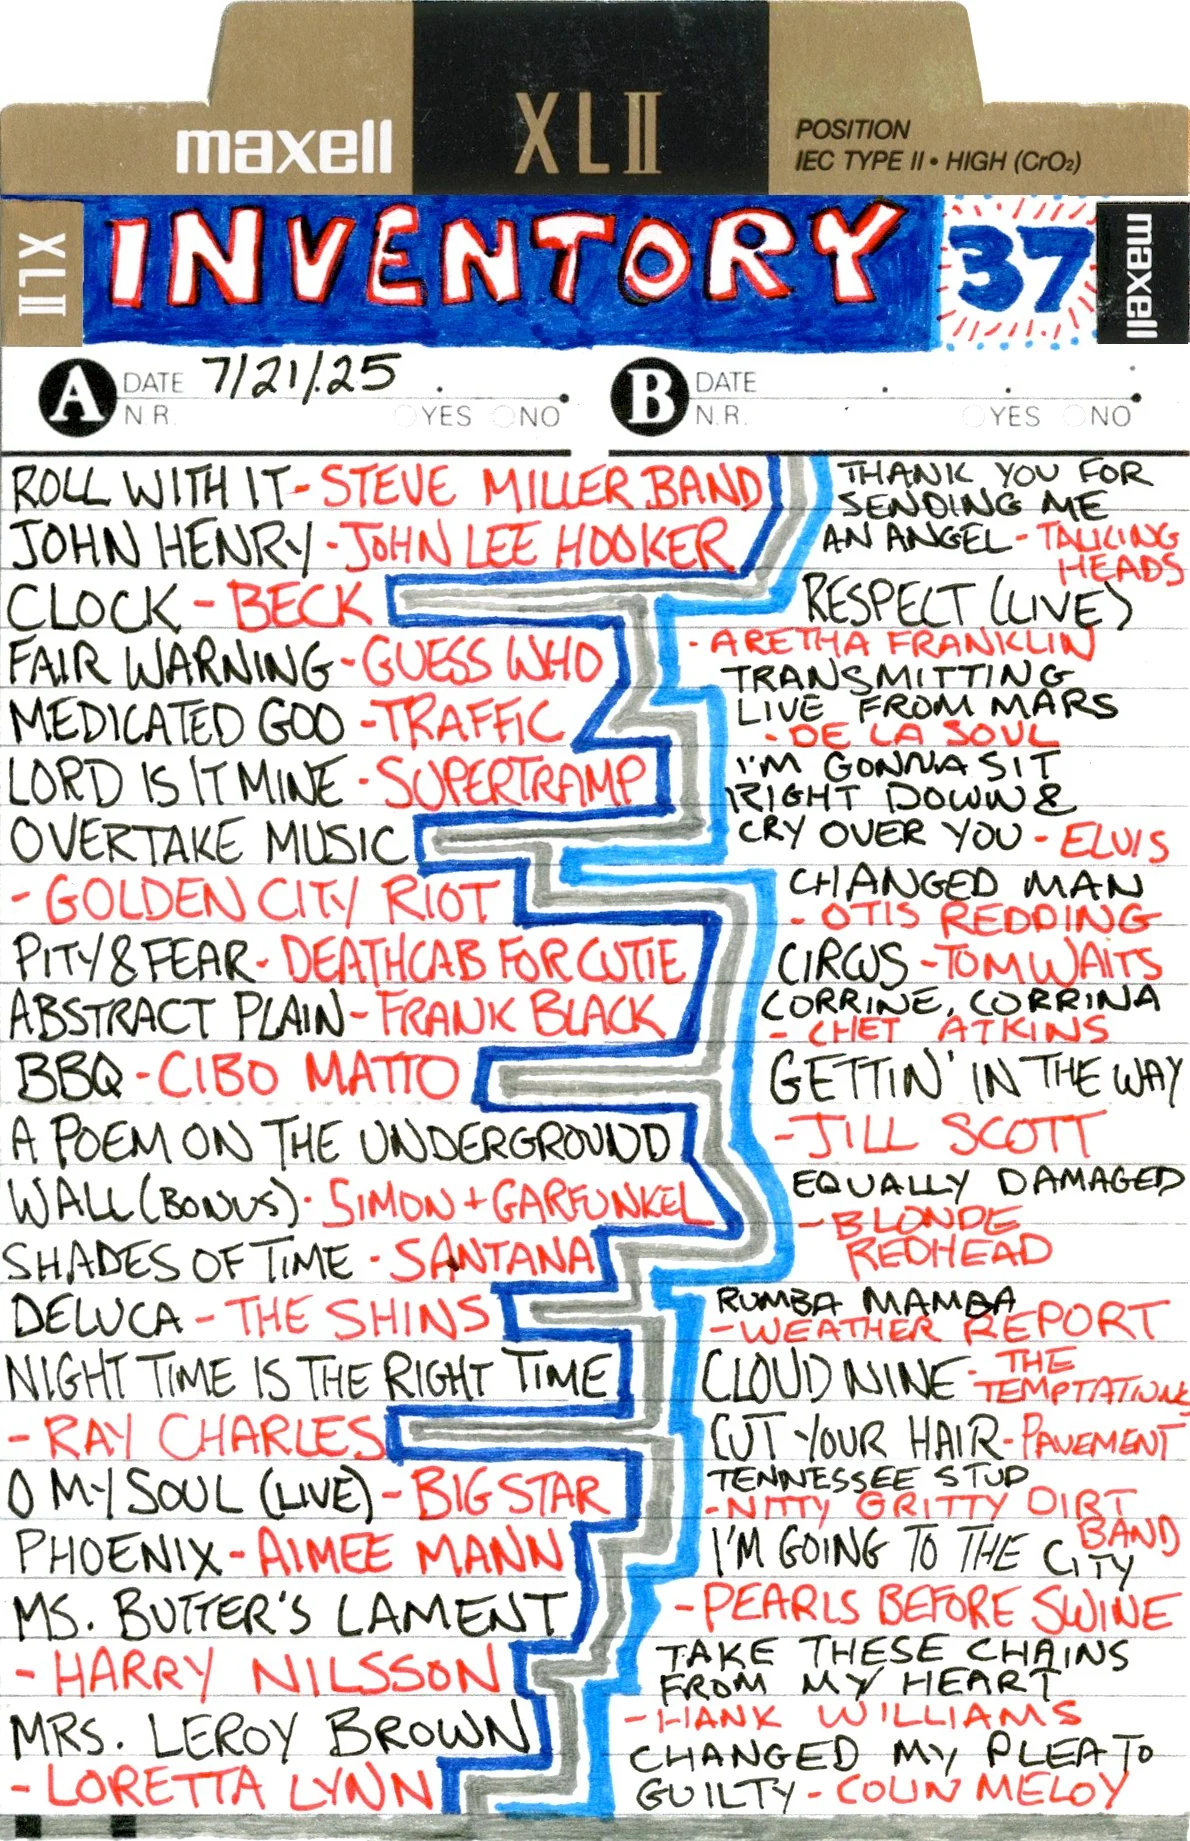 maxell
XLII
POSITION
IEC TYPE II • HIGH (CrO₂)
XLII
INVENTORY
37
maxell
A
DATE 7/21/.25
N.R. YES NO
B
DATE
N.R. YES NO
ROLL WITH IT - STEVE MILLER BAND
JOHN HENRY - JOHN LEE HOOKER
CLOCK - BECK
FAIR WARNING - GUESS WHO
MEDICATED GOO - TRAFFIC
LORD IS IT MINE - SUPERTRAMP
OVERTAKE MUSIC
- GOLDEN CITY RIOT
PITY & FEAR - DEATHCAB FOR CUTIE
ABSTRACT PLAIN - FRANK BLACK
BBQ - CIBO MATTO
A POEM ON THE UNDERGROUND
WALL (BONUS) - SIMON + GARFUNKEL
SHADES OF TIME - SANTANA
DELUCA - THE SHINS
NIGHT TIME IS THE RIGHT TIME
- RAY CHARLES
O MY SOUL (LIVE) - BIG STAR
PHOENIX - AIMEE MANN
MS. BUTTER'S LAMENT
- HARRY NILSSON
MRS. LEROY BROWN
- LORETTA LYNN
THANK YOU FOR
SENDING ME
AN ANGEL - TALKING
HEADS
RESPECT (LIVE)
- ARETHA FRANKLIN
TRANSMITTING
LIVE FROM MARS
- DE LA SOUL
I'M GONNA SIT
RIGHT DOWN &
CRY OVER YOU - ELVIS
CHANGED MAN
- OTIS REDDING
CIRCUS - TOM WAITS
CORRINE, CORRINA
- CHET ATKINS
GETTIN' IN THE WAY
- JILL SCOTT
EQUALLY DAMAGED
- BLONDE
REDHEAD
RUMBA MAMBA
- WEATHER REPORT
CLOUD NINE - THE
TEMPTATIONS
CUT YOUR HAIR - PAVEMENT
TENNESSEE STUD
- NITTY GRITTY DIRT
BAND
I'M GOING TO THE CITY
- PEARLS BEFORE SWINE
TAKE THESE CHAINS
FROM MY HEART
- HANK WILLIAMS
CHANGED MY PLEA TO
GUILTY - COLIN MELOY